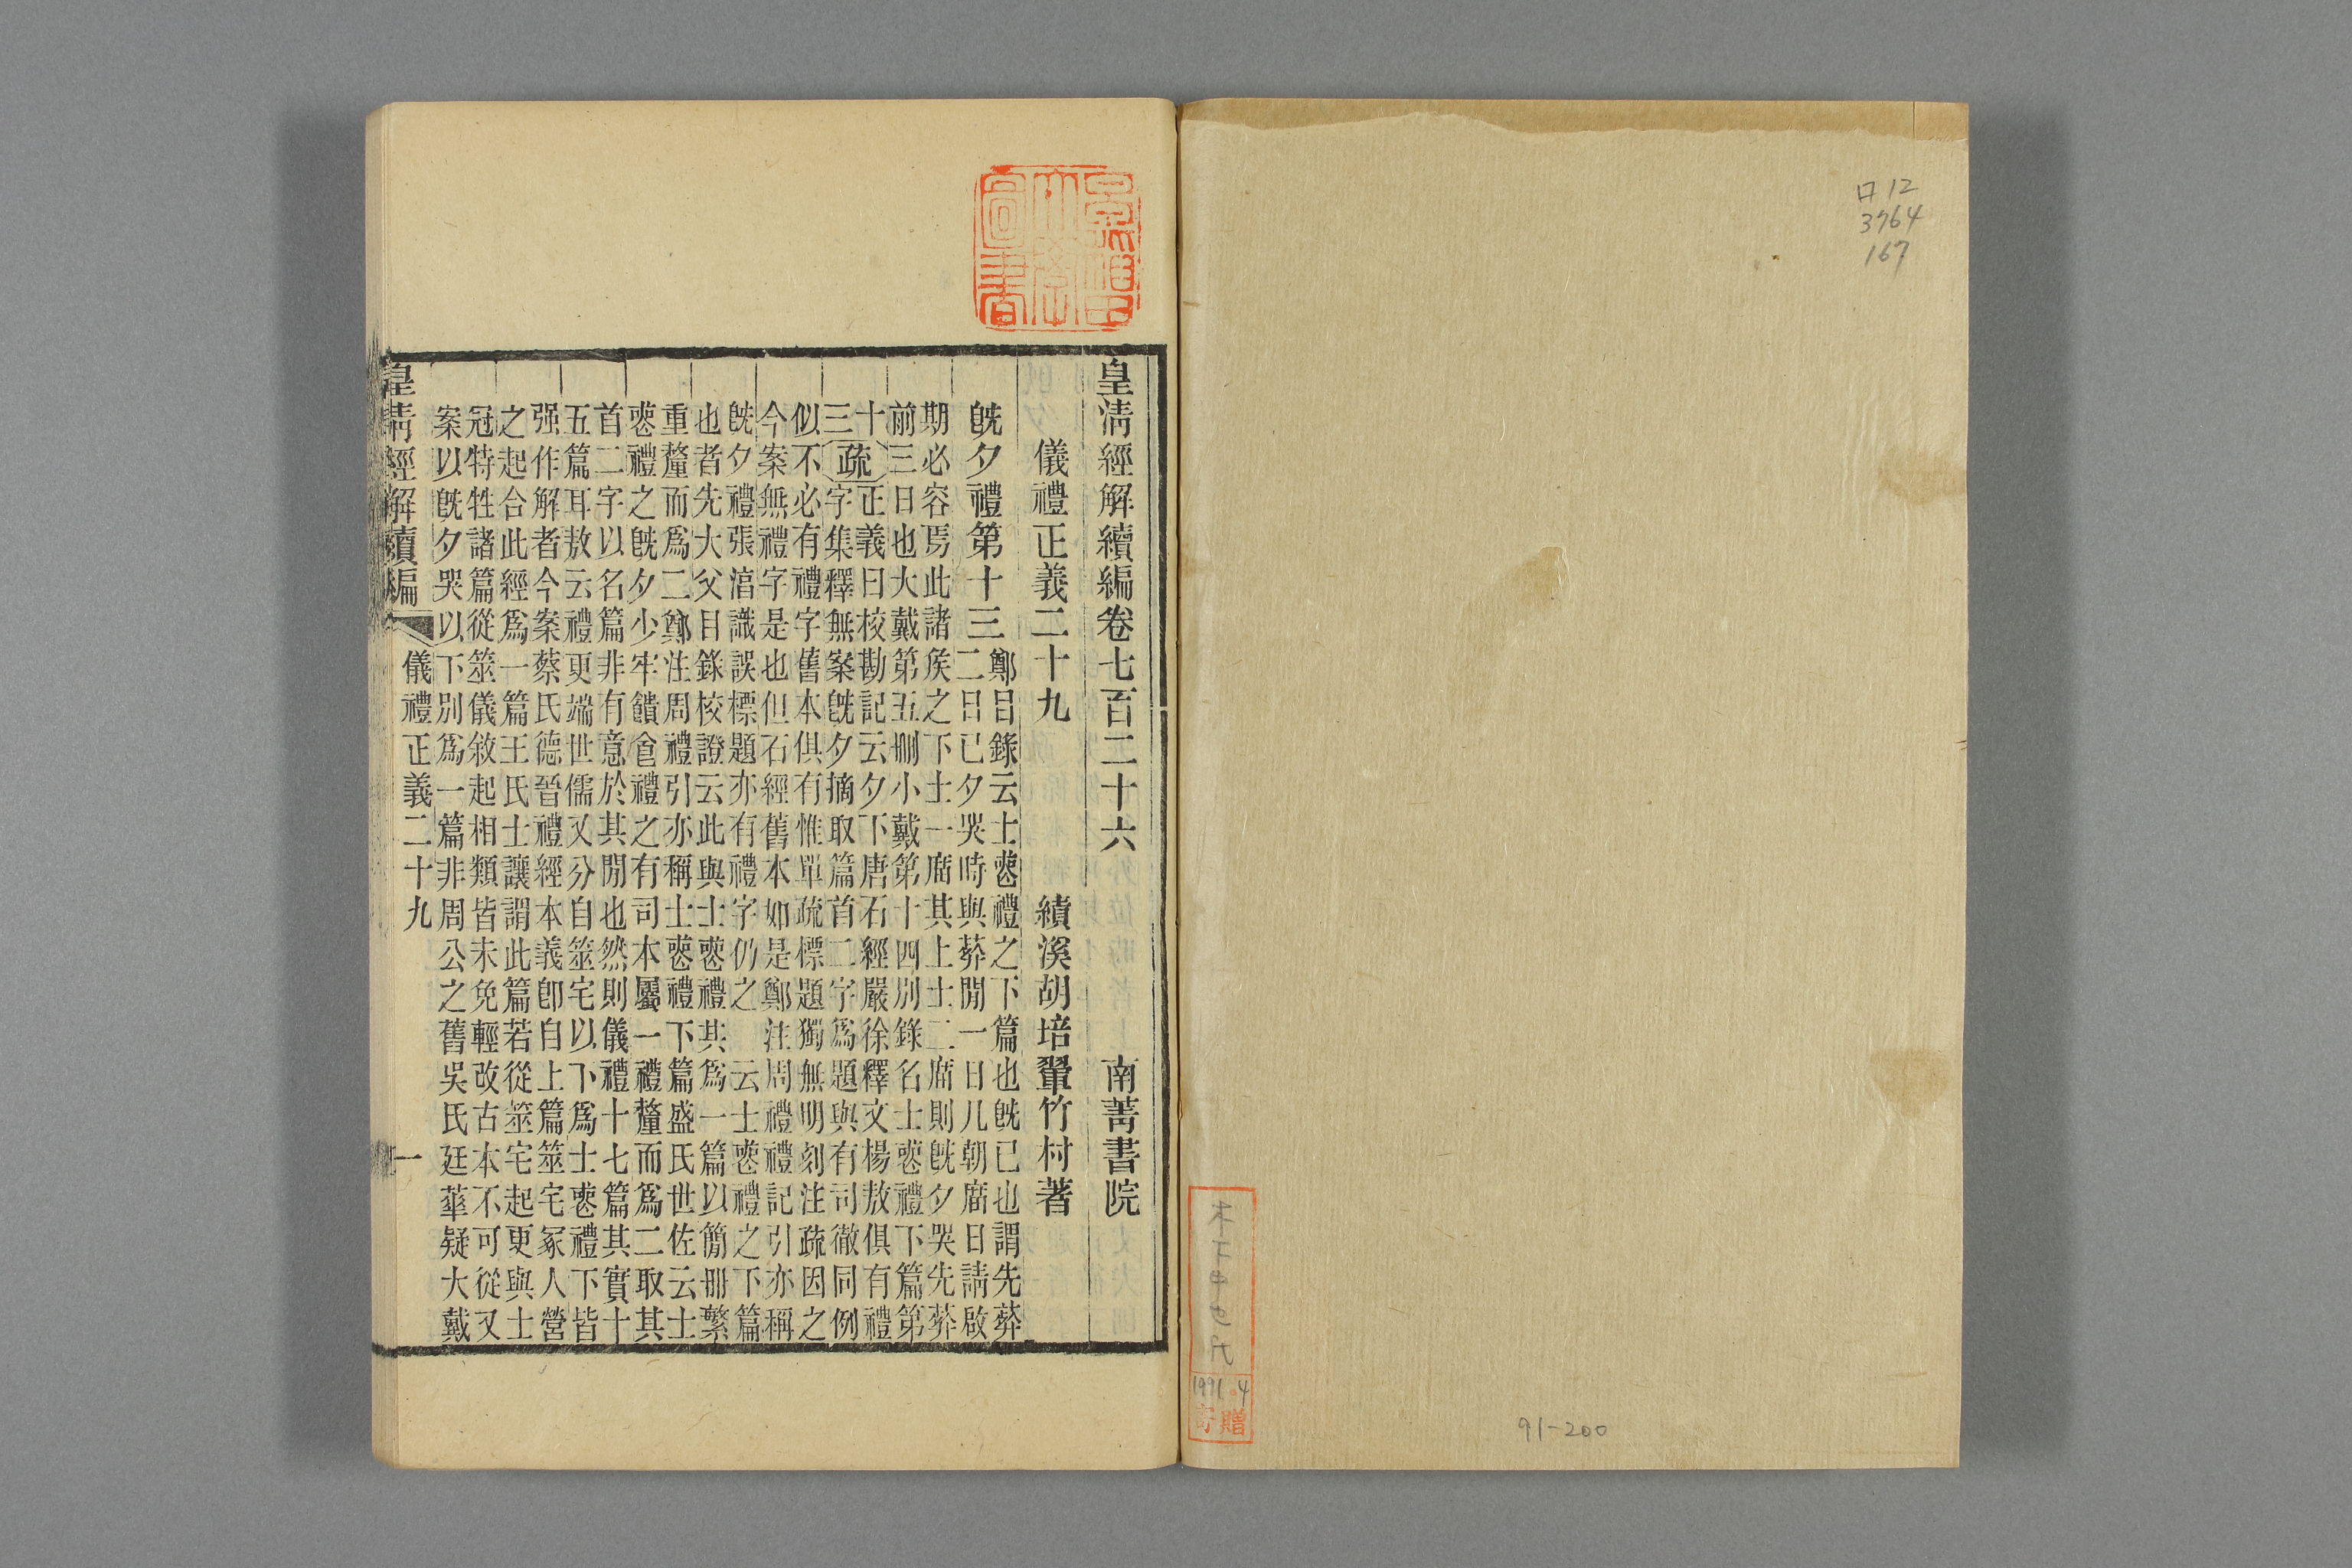 ロ12
3764
167
木下中也氏
1991.4
寄贈
91-200
皇清經解續編卷七百二十六 南菁書院
儀禮正義二十九 績溪胡培翬竹村著
既夕禮第十三
鄭目錄云士喪禮之下篇也既已也謂先葬
二日已夕哭時與葬閒一日凡朝廟日請啟
期必容焉此諸矦之下士一廟其上士二廟則既夕哭先葬
前三日也大戴第五刪小戴第十四別錄名士喪禮下篇第
十三
疏
正義曰校勘記云夕下唐石經嚴徐釋文楊敖俱有禮
字集釋無案既夕摘取篇首二字爲題與有司徹同例
似不必有禮字舊本俱有惟單疏標題獨無明刻注疏因之
今案無禮字是也但石經舊本如是鄭注周禮禮記引亦稱
既夕禮張淳識誤標題亦有禮字仍之 云士喪禮之下篇
也者先大父目錄校證云此與士喪禮其爲一篇以簡冊繁
重釐而爲二鄭注周禮引亦稱士喪禮下篇盛氏世佐云士
喪禮之既夕少牢饋食禮之有司本屬一禮釐而爲二取其
首二字以名篇非有意於其閒也然則儀禮十七篇其實十
五篇耳敖云禮更端世儒又分自筮宅以下爲士喪禮下皆
强作解者今案蔡氏德晉禮經本義卽自上篇筮宅冢人營
之起合此經爲一篇王氏士讓謂此篇若從筮宅起更與士
冠特牲諸篇從筮儀敘起相類皆未免輕改古本不可從又
案以既夕哭以下別爲一篇非周公之舊吳氏廷華疑大戴
皇清經解續編 儀禮正義二十九 一